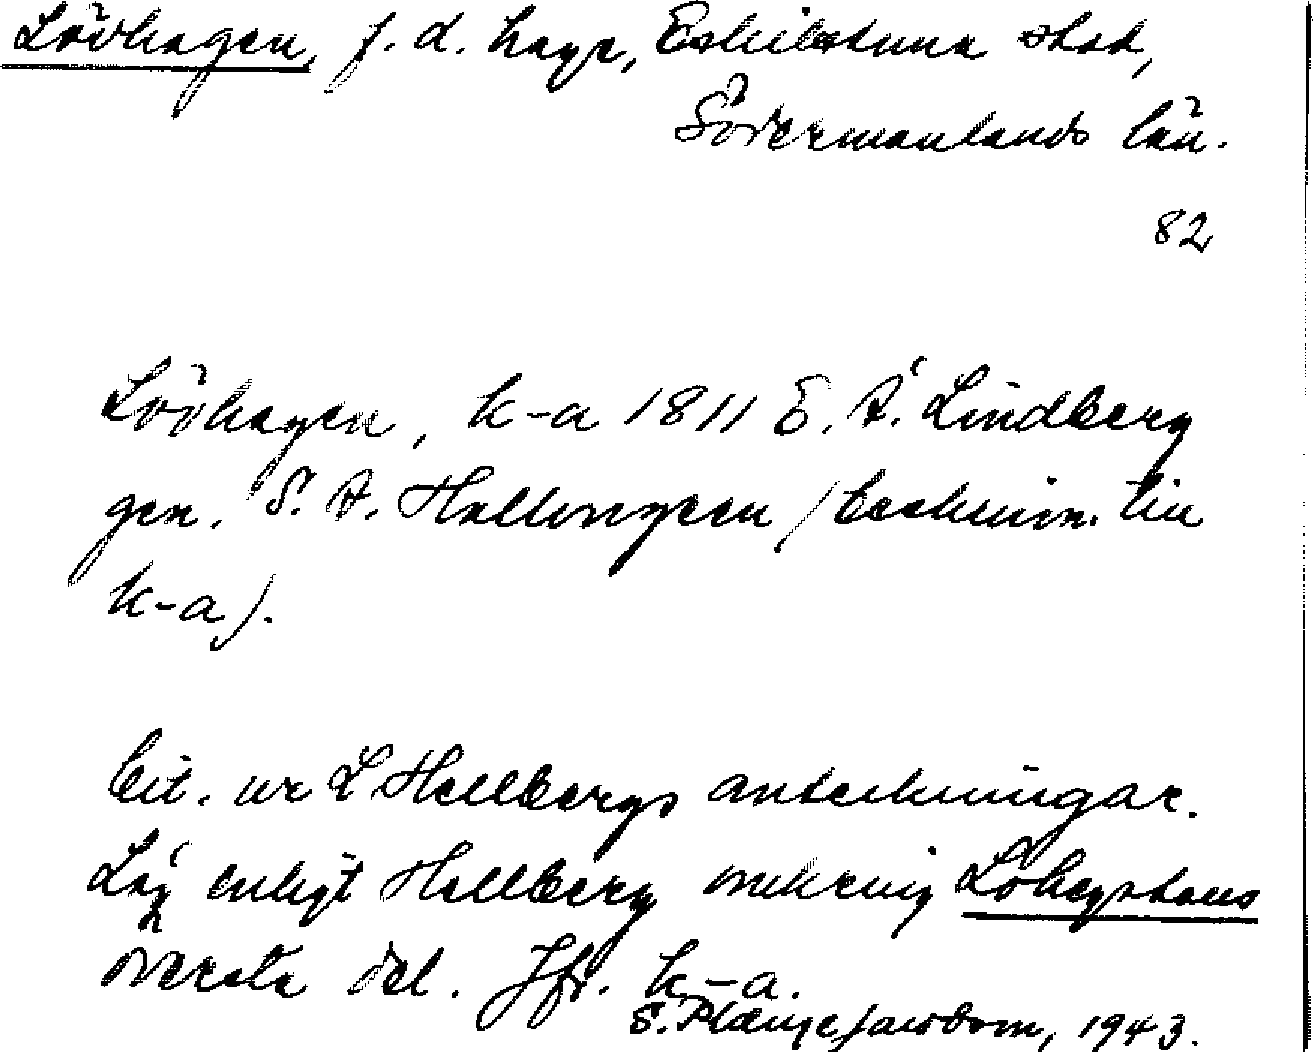 Lövhagen, f. d. hage, Eskilstuna stad,
Södermanlands län.
82
Lövhagen, k-a 1811 E. A. Lindberg
gen. S. A. Hallongren (beskrivn. till
k-a).
Cit. ur L Hellbergs anteckningar.
Låg enligt Hellberg omkring Löhagstaus
översta del. Jfr. k-a.
S. Plænge Jacobson, 1943.